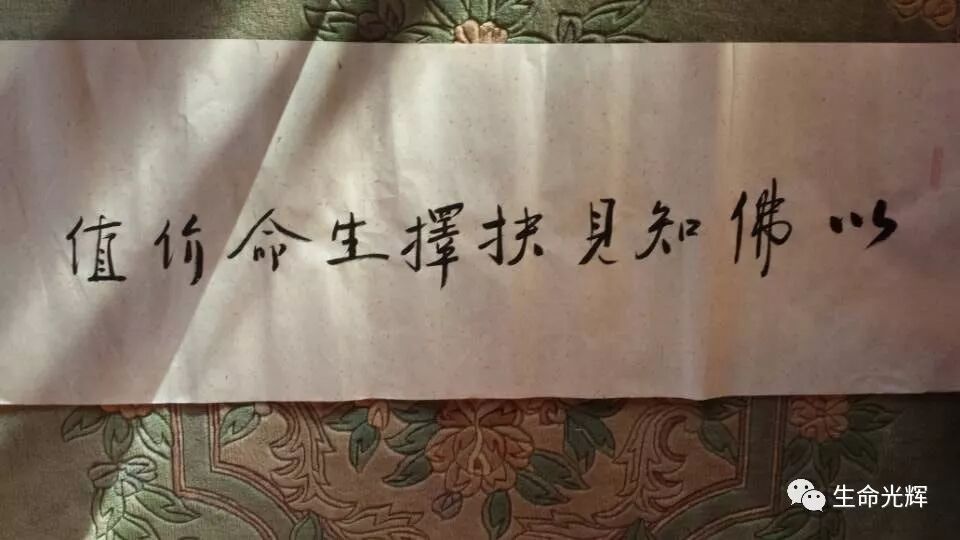 以佛知見抉擇生命价值
生命光辉